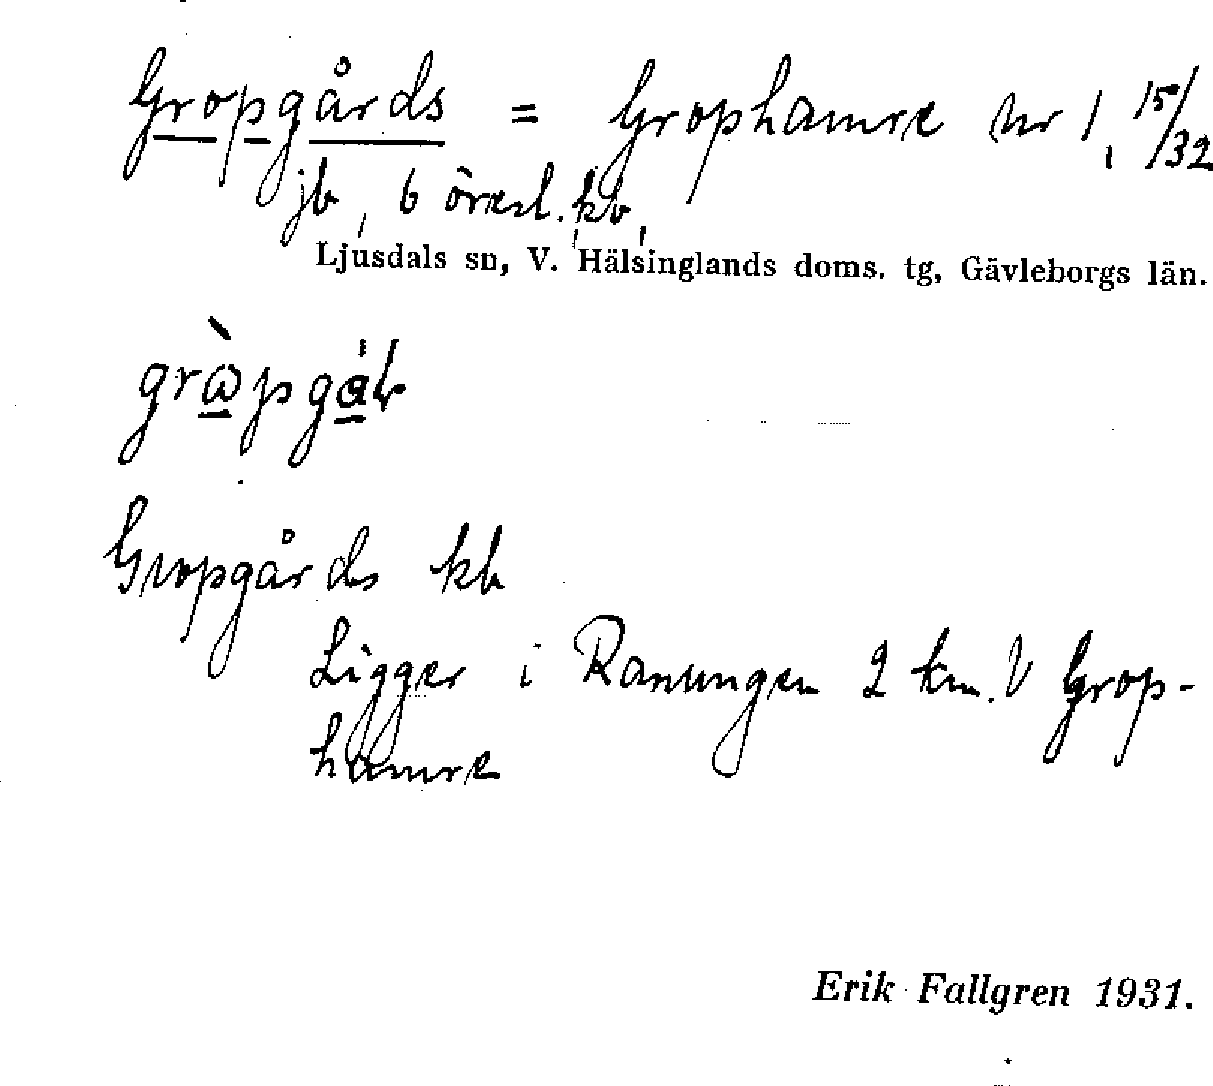 Gropgårds = Grophamre Nr 1, 15/32
jb, 6 öresl. kb,
Ljusdals sn, V. Hälsinglands doms. tg, Gävleborgs län.
Gropgårds kb
Ligger i Ranungen 2 km. V Grop-
hamre
Erik Fallgren 1931.